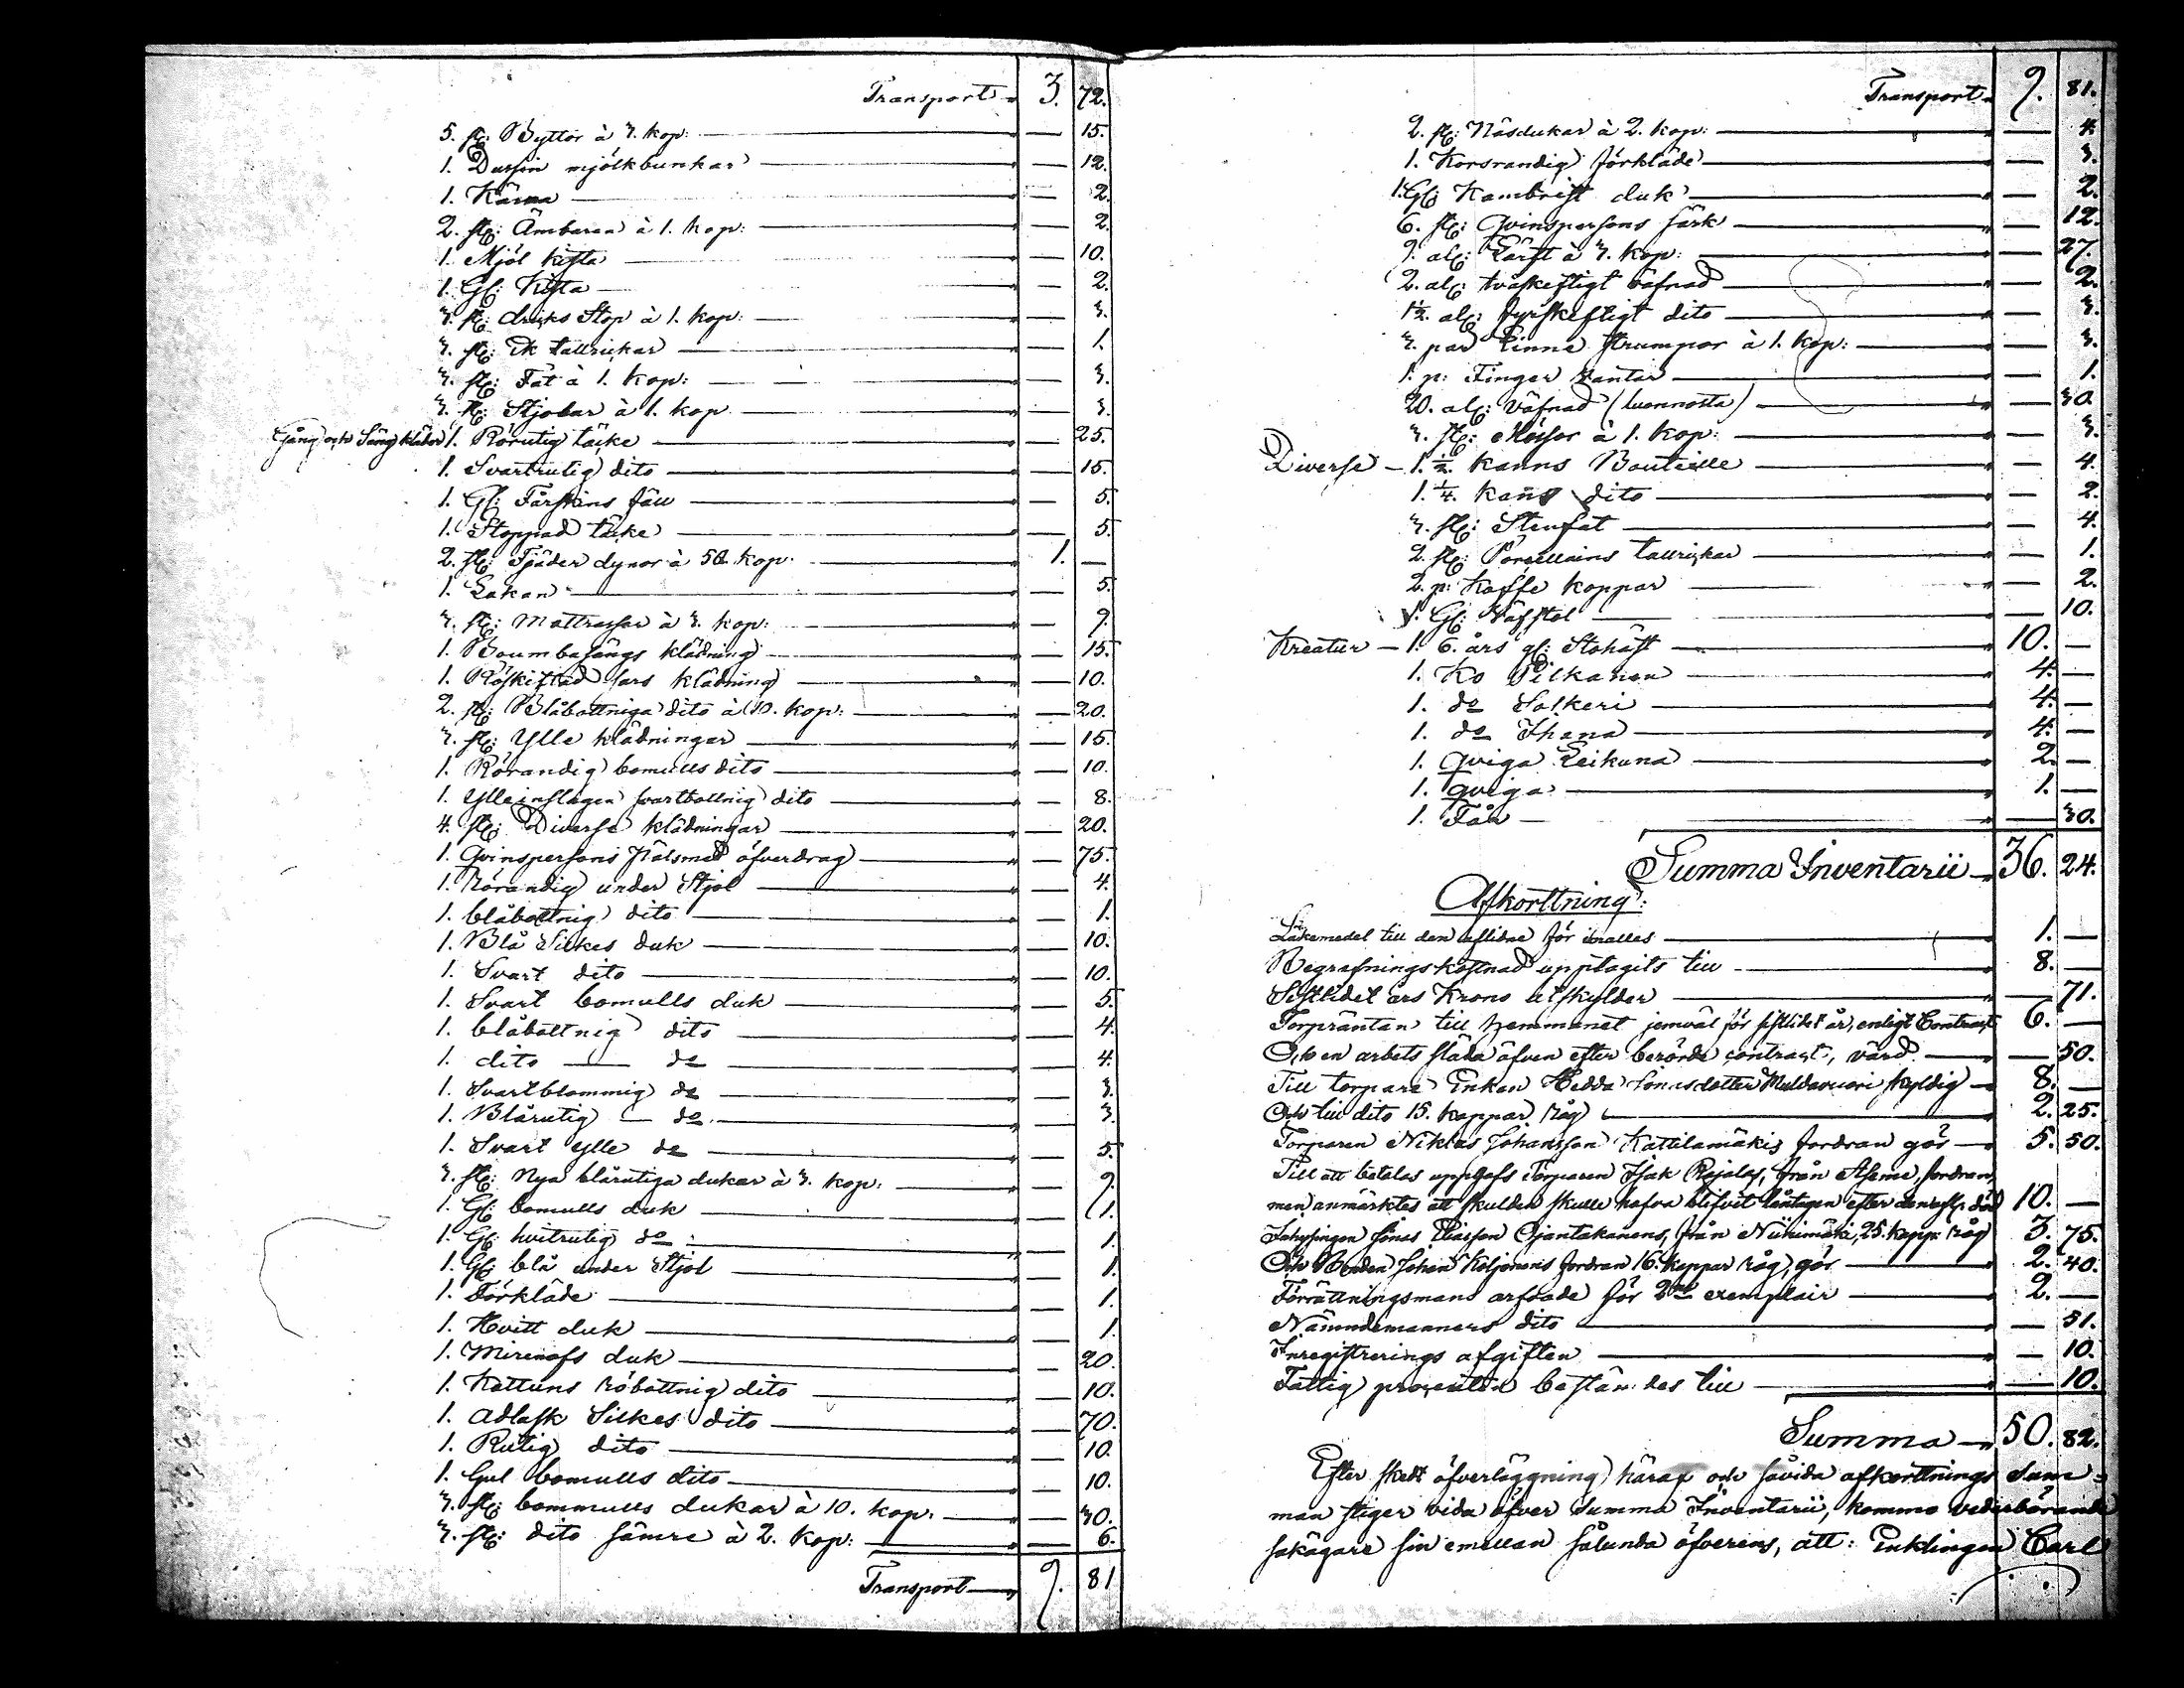 Transport 3. 72.
5. st: Byttor à 3. kop: — 15.
1. Dussin mjölkbunkar — 12.
1. Kärna — 2.
2. st: Ämbaren à 1. kop: — 2.
1. Mjöl kista — 10.
1. Gl: Kista — 2.
3. st: dricks Stop à 1. kop: — 3.
3. st: tallrickar — 1.
3. st: Fat à 1. kop: — 3.
3. st: à 1. kop — 3.
Gång och Säng kläder 1. Rörutig täcke — 25.
1. Svartrutig dito — 15.
1. Gl: Fårskins fäll — 5.
1. Stoppad täcke — 5.
2. st: Fjäder dynor à 50 kop. 1. —
1. Lakan — 5.
3. st: Mattrasser à 3. kop: — 9.
1. Boumbasängs klädning — 15.
1. Röskiftad sars klädning — 10.
2. st: Blåbottniga dito à 10. kop: — 20.
3. st: Ylle klädningar — 15.
1. Rörandig bomulls dito — 10.
1. Ylleinslagen svartbottnig dito — 8.
4. st: Diverse klädningar — 20.
1. Qvinspersons Päls med öfverdrag — 75.
1. rörandig under Stjol — 4.
1. blåbottnig dito — 1.
1. Blå Silkes duk — 10.
1. Svart dito — 10.
1. Svart bomulls duk — 5.
1. blåbottnig dito — 4.
1. dito — do — 4.
1. Svartblommig do — 3.
1. Blårutig — do — 3.
1. Svart ylle do — 5.
3. st: Nya blårutiga dukar à 3. kop: — 9.
1. Gl: bomulls duk — 1.
1. Gl: hvitrutig do — 1.
1. Gl: blå under Stjol — 1.
1. Förkläde — 1.
1. Hvitt duk — 1.
1. Mirinofs duk — 20.
1. Kattuns röbottnig dito — 10.
1. Adlask Silkes dito — 70.
1. Rutig dito — 10.
1. Gul bomulls dito — 10.
3. st: bommulls dukar à 10. kop. — 30.
3. st: dito sämre à 2. kop: — 6.
Transport 9. 81
Transport 9. 81.
2. st: Näsdukar à 2. kop: — 4.
1. Korsrandig förkläde — 3.
1. Gl: Kambrist duk — 2.
6. st: Qvinspersons särk — 12.
9. aln: Lärft à 3. kop: — 27.
2. aln: tvåskeftigt väfnad — 2.
1½. aln: fyrskeftigt dito — 3.
3. par Linne strumpor à 1. kop: — 3.
1. p: Finger vantar — 1.
20. aln: väfnad (luonnosta) — 30.
3. st: Mössor à 1. kop: — 3.
Diverse — 1. ½. kanns Bouteille — 4.
1. ¼. kans dito — 2.
3. st: Stenfat — 4.
2. st: Porcellains tallrickar — 1.
2. p: Kaffe koppar — 2.
1. Gl: Väfstol — 10.
Kreatur — 1. 6. års gl: Stohäst 10. —
1. Ko Pilkanen 4. —
1. do Solkeri 4. —
1. do Ihana 4. —
1. Qviga Leikuna 2. —
1. qviga 1. —
1. Får — 30.
Summa Inventarii 36. 24.
Afkorttning:
Läkemedel till den aflidne för inalles 1. —
Begrafningskostnad upptagits till 8. —
Sistlidet års Krono utskylder — 71.
Torpräntan till hemmanet jemväl för sistlidet år, enligt Contract 6. —
Och en arbets släda äfven efter berörde contract, värd — 50.
Till torpare Enkan Hedda Jonasdotter Multavuori skyldig 8. —
Och till dito 15. kappar råg 2. 25.
Torparen Niklas Johansson Kattilamäkis fordran gör 5. 50.
Till att betalas uppgafs Torparen Isak Rajalas, från Aseme, fordran,
men anmärktes att skulden skulle hafva blifvit låntagen efter den afl: död 10. —
Inhysingen Jonas Eliasson Ojantakanens, från Niinimäki, 25. kapp: råg 3. 75.
Och Bonden Johan Koljonens fordran 16. kappar råg, gör 2. 40.
Förrättningsmans arfvode för 2ne exemplair 2. —
Nämndemanners dito — 51.
Inregistrerings afgiften — 10.
Fattig procenten bestämdes till — 10.
Summa 50. 82.
Efter skedt öfverläggning häraf och såvida afkorttnings Sum=
man stiger vida öfver Summa Inventarii, kommo vederbörande
sakägare sin emellan sålunda öfverens, att: Enklingen Carl